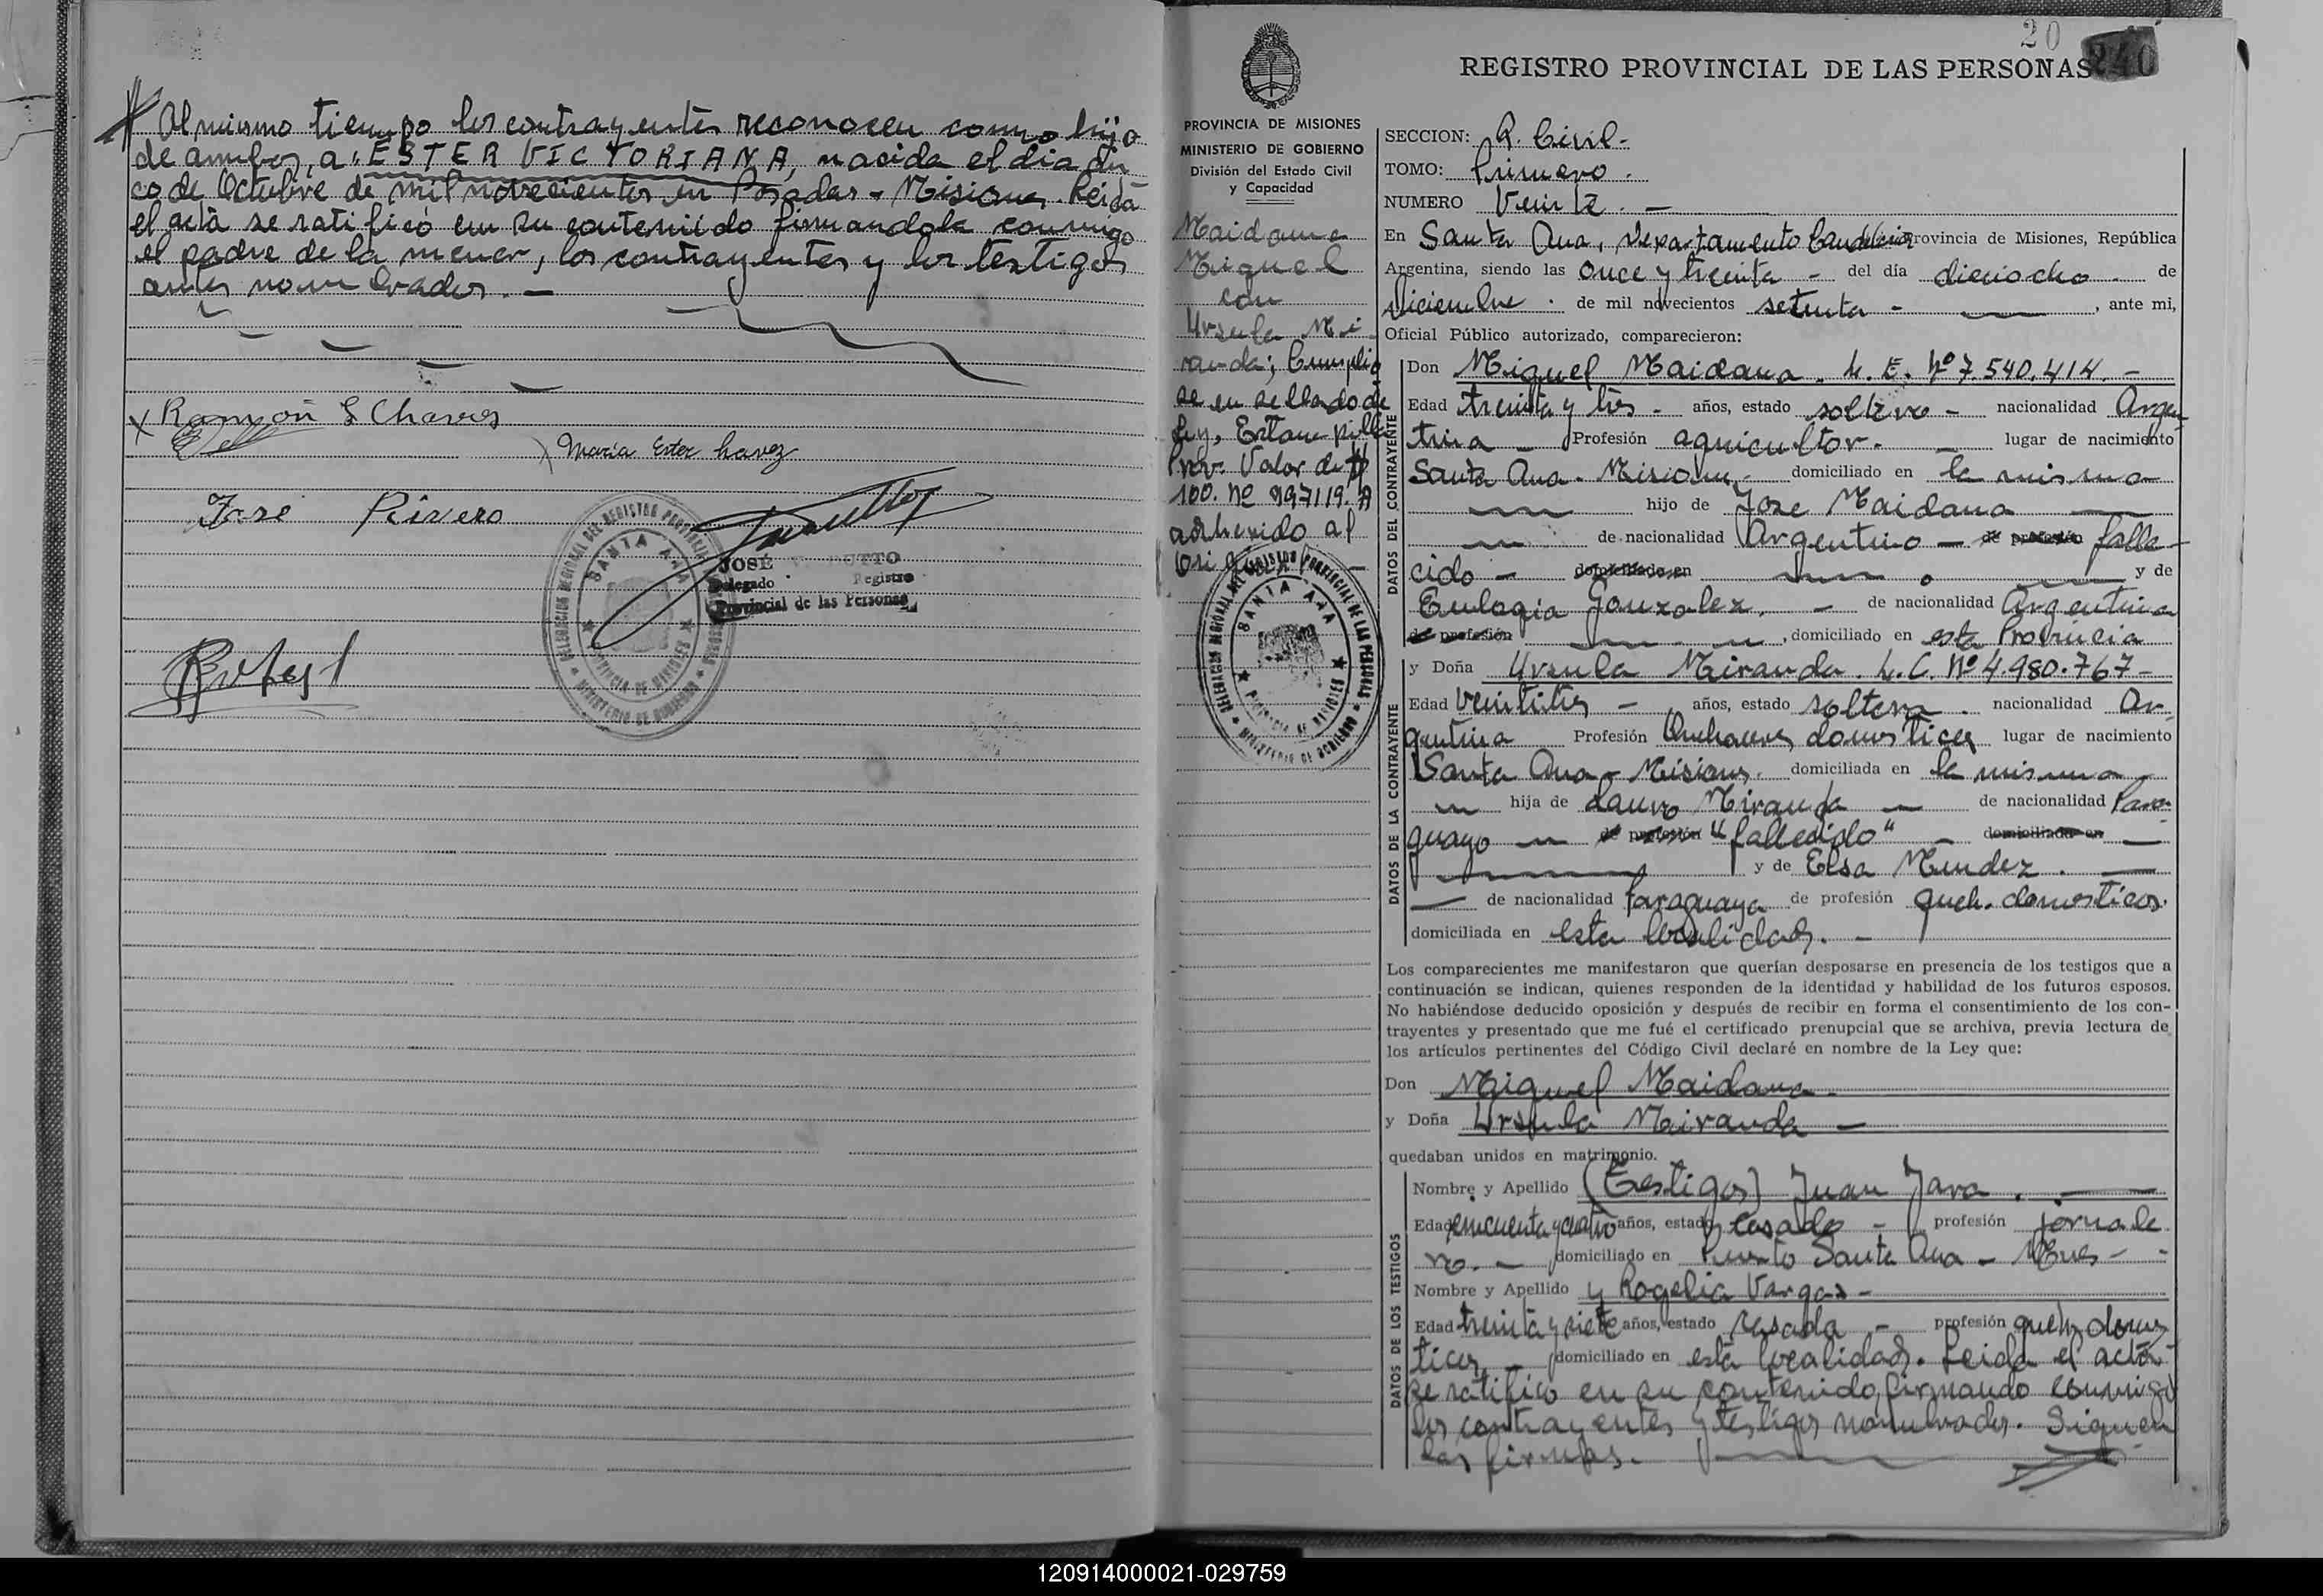 Al mismo tiempo los contrayentes reconocen como hija
de ambos, a: ESTER VICTORIANA, nacida el dia cin
co de Octubre de mil novecientos en Posadas - Misiones. Leida
el acta se ratificó en su contenido firmandola conmigo
el padre de la menor, los contrayentes y los testigos
antes nombrados. —
x Ramón S Chaves
x María Ester havez
José Rivero
JOSÉ OTTO
Delegado Registro
Provincial de las Personas
DELEGACION REGIONAL DEL REGISTRO PROVINCIAL DE LAS PERSONAS
SANTA ANA
PROVINCIA DE MISIONES
MINISTERIO DE GOBIERNO
20
240
REGISTRO PROVINCIAL DE LAS PERSONAS
PROVINCIA DE MISIONES
MINISTERIO DE GOBIERNO
División del Estado Civil
y Capacidad
Maidana
Miguel
con
Ursula Mi
randa; Cumplió
se en sellado de
ley, Estampilla
Prov. Valor de $
100. Nº 997119. A
adherido al
Original —
DELEGACION REGIONAL DEL REGISTRO PROVINCIAL DE LAS PERSONAS
SANTA ANA
PROVINCIA DE MISIONES
MINISTERIO DE GOBIERNO
SECCION: R. Civil -
TOMO: Primero.
NUMERO Veinte. —
En Santa Ana, Departamento Candelaria Provincia de Misiones, República
Argentina, siendo las once y treinta - del día dieciocho - de
Diciembre - de mil novecientos setenta - , ante mi,
Oficial Público autorizado, comparecieron:
DATOS DEL CONTRAYENTE
Don Miguel Maidana. L. E. Nº 7.540.414. -
Edad treinta y tres - años, estado soltero - nacionalidad Argen
tina - Profesión agricultor. - lugar de nacimiento
Santa Ana - Misiones, domiciliado en la misma
hijo de Jose Maidana
de nacionalidad Argentino - de profesión falle
cido - domiciliado en y de
Eulogia Gonzalez. - de nacionalidad Argentina
de profesión , domiciliado en esta Provincia
DATOS DE LA CONTRAYENTE
y Doña Ursula Miranda. L. C. Nº 4.980.767 -
Edad veintitres - años, estado soltera. nacionalidad Ar
gentina Profesión Quehaceres domesticos lugar de nacimiento
Santa Ana - Misiones. domiciliada en la misma
hija de Lauro Miranda - de nacionalidad Para-
guayo - de profesión "fallecido" - domiciliado en -
y de Elsa Mendez. -
de nacionalidad Paraguaya de profesión queh. domesticos.
domiciliada en esta localidad. -
Los comparecientes me manifestaron que querían desposarse en presencia de los testigos que a
continuación se indican, quienes responden de la identidad y habilidad de los futuros esposos.
No habiéndose deducido oposición y después de recibir en forma el consentimiento de los con-
trayentes y presentado que me fué el certificado prenupcial que se archiva, previa lectura de
los artículos pertinentes del Código Civil declaré en nombre de la Ley que:
Don Miguel Maidana -
y Doña Ursula Miranda -
quedaban unidos en matrimonio.
DATOS DE LOS TESTIGOS
Nombre y Apellido (Testigos) Juan Jara. -
Edad cincuenta y cuatro años, estado casado - profesión jornale
ro. - domiciliado en Puerto Santa Ana - Mnes - -
Nombre y Apellido y Rogelia Vargas -
Edad treinta y siete años, estado casada - profesión queh. domes
ticos, domiciliado en esta localidad. Leida el acta
se ratifico en su contenido, firmando conmigo
los contrayentes y testigos nombrados. Siguen
las firmas. -
120914000021-029759